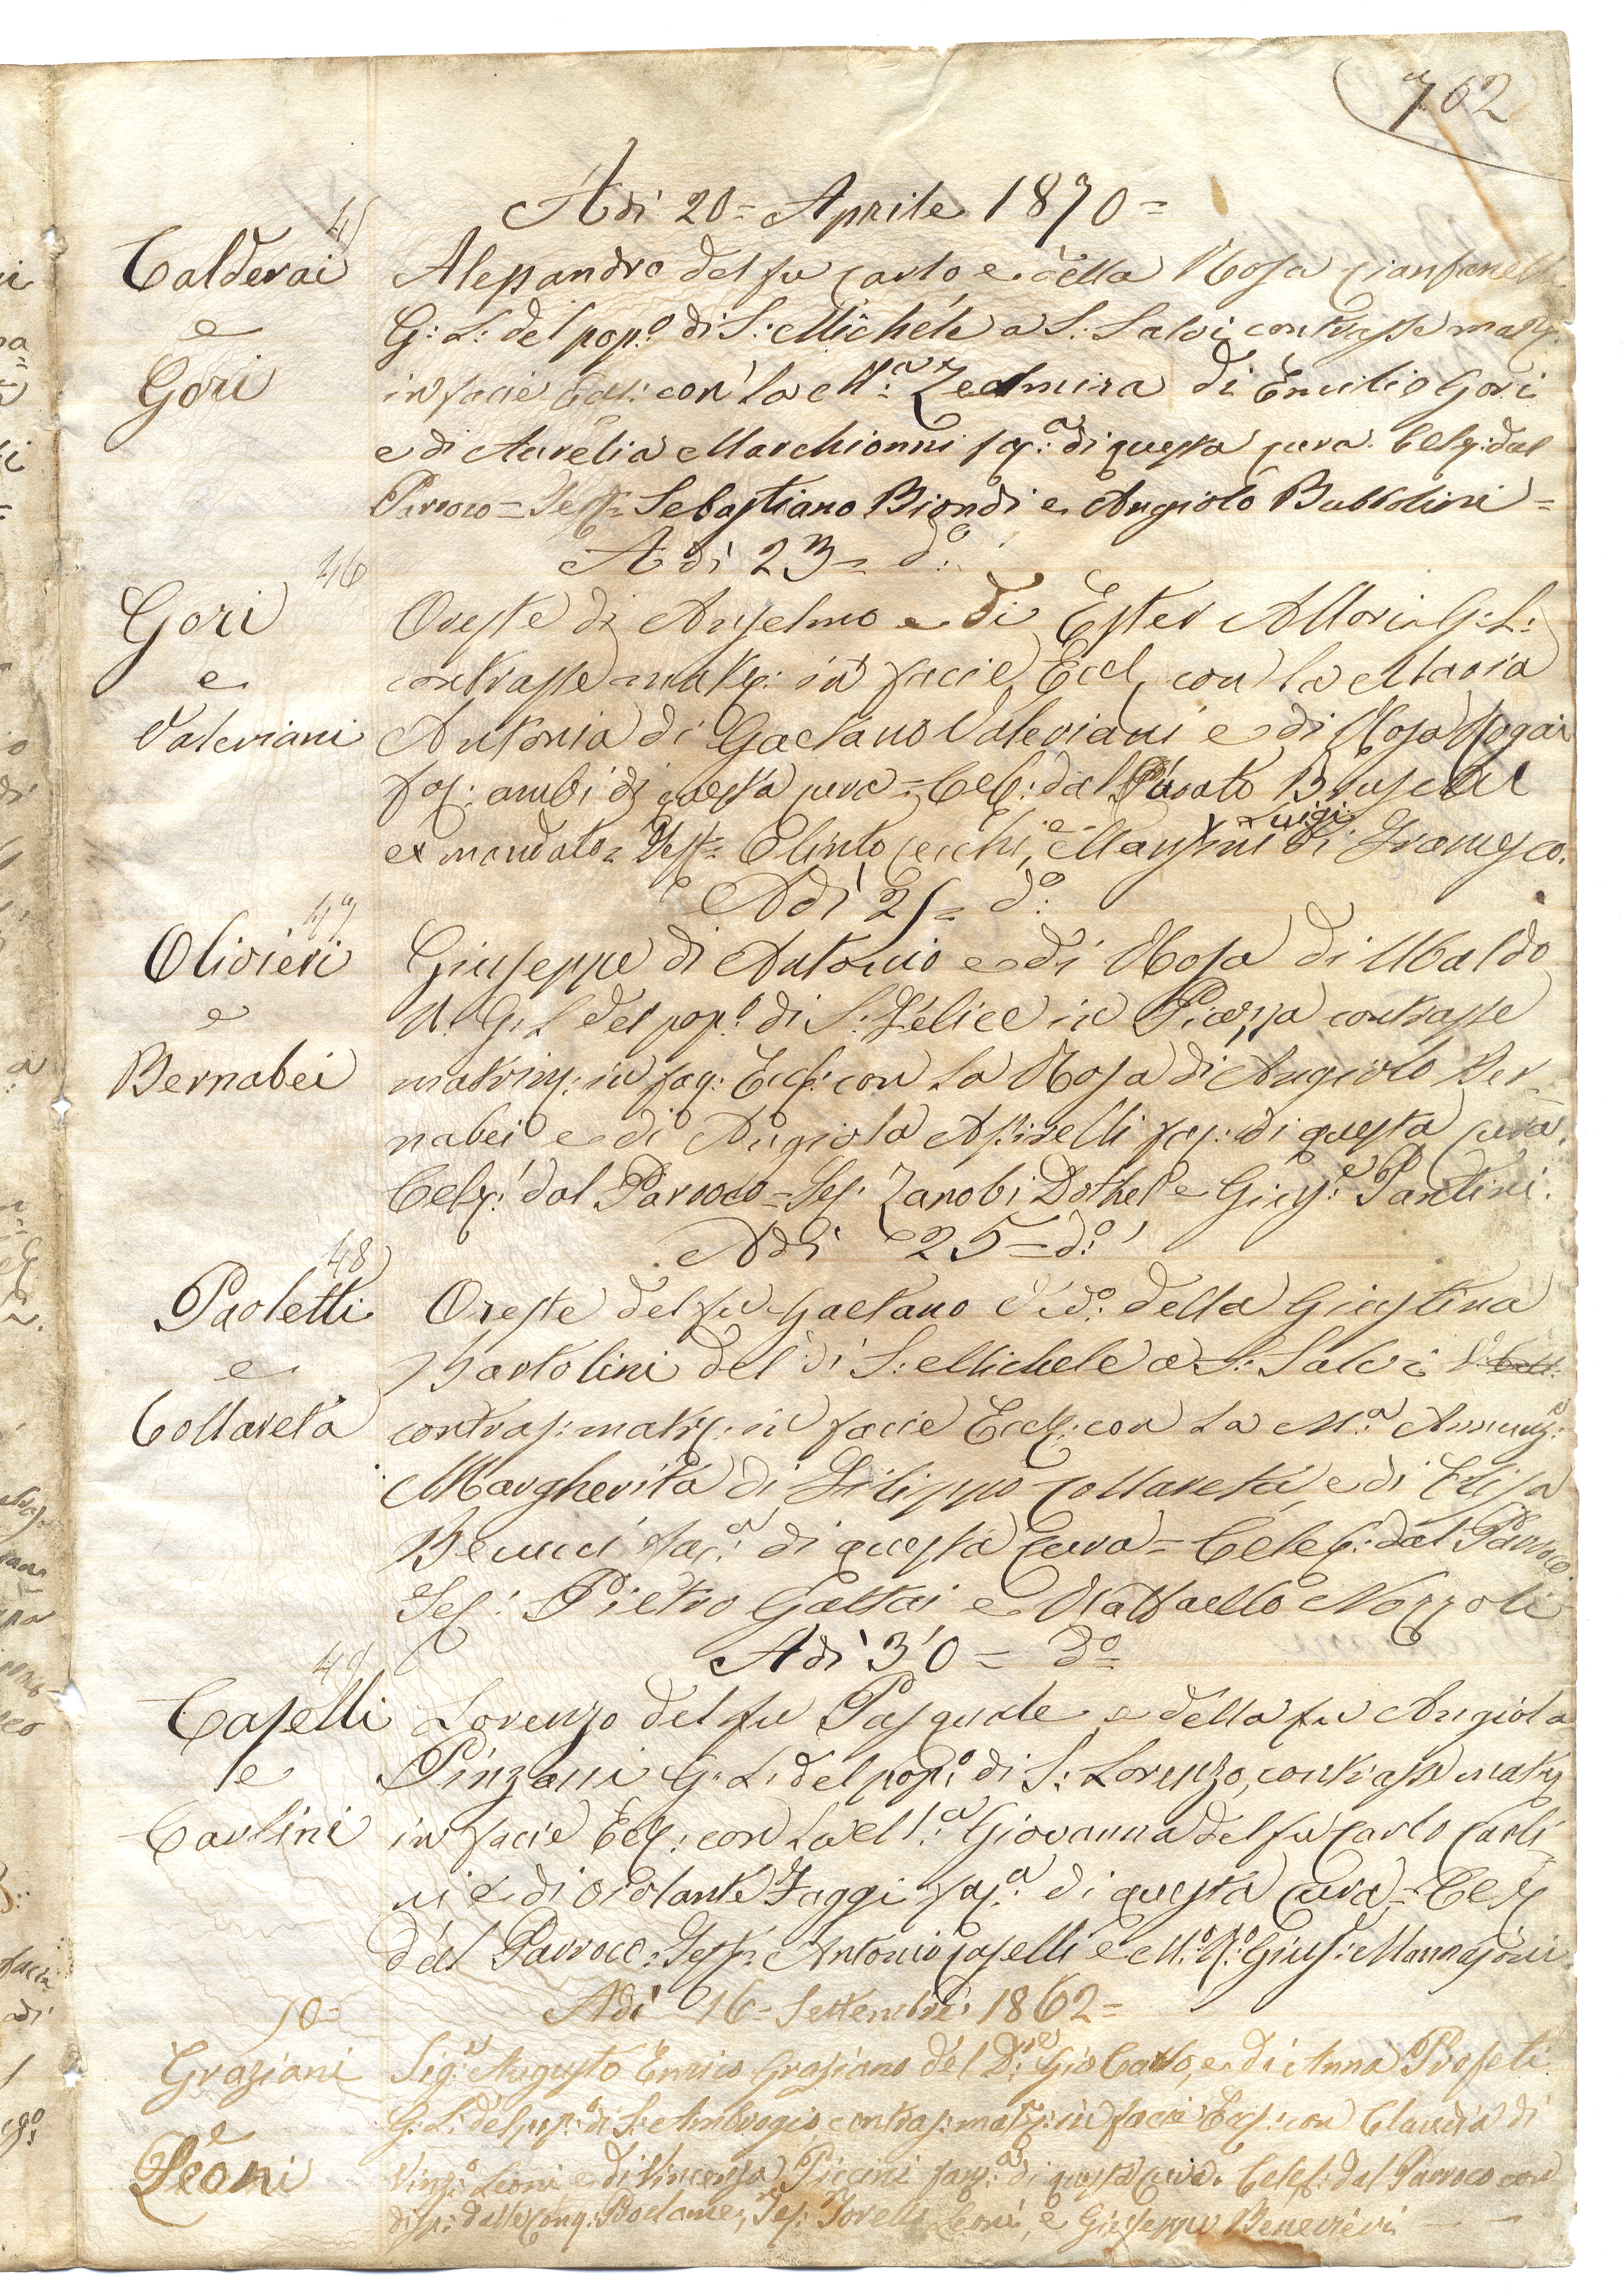 762
Adì 20 = Aprile 1870 =
45
Calderai
e
Gori
Alessandro del fu Carlo, e della Rosa Cianfanelli
G: L: del pop:o di S: Michele a S: Salvi contrasse matr:
in facie Eccl: con la M:a Zelmira di Emilio Gori
e di Aurelia Marchionni fac:a di questa cura. Celeb: dal
Parroco = Test: Sebastiano Biondi e Angiolo Bubbolini =
Adì 23 = d:o
46
Gori
e
Valeriani
Oreste di Anselmo e di Ester Allori G: L:
contrasse matr: in facie Eccl, con la Maria
Antonia di Gaetano Valeriani e di Rosa
fac: ambi di questa cura = Celeb: dal Curato
ex mandato = Test: Olinto Cecchi, e Luigi Mansini di Francesco.
Adì 25 = d:o
47
Olivieri
e
Bernabei
Giuseppe di Antonio e di Rosa di Ubaldo
G: L del pop:o di S: Felice in Piazza contrasse
matrim: in fac: Eccl: con la Rosa di Angiolo Ber-
nabei e di Angiola fac: di questa cura.
Celeb: dal Parroco = Tes: Zanobi Dothel e Gius:e Pantini.
Adì 25 = d:o
48
Paoletti
e
Collareta
Oreste del fu Gaetano Ved:o della Giustina
Bartolini del di S: Michele a S: Salvi
contras: matr: in facie Eccl: con la M:a Annunz:a
Margherita di Filippo Collareta, e di Elisa
Benucci fac:a di questa Cura = Celeb: dal Parroco.
Tes: Pietro Gattai e Raffaello Nozzoli
Adì 30 = d:o
49
Caselli
e
Carlini
Lorenzo del fu Pasquale e della fu Angiola
Pinzani G: L: del pop:o di S: Lorenzo, contrasse matr:
in facie Eccl: con la M:a Giovanna del fu Carlo Carli-
ni e di Violante Faggi fac:a di questa Cura = Celeb:
dal Parroco = Test: Antonio Caselli e Gius: Mannajoni.
Adì 16 = Settembre 1862 =
50 =
Graziani
e
Leoni
Sig:r Augusto Enrico Graziano del D:re Gio Carlo, e di Anna Profeti
G: L: del pop:o di S: Ambrogio contras: matr: in facie Eccl: con Claudia di
Vinc:o Leoni e di Vincenza Piccini fac:a di questa Cura. Celeb: dal Parroco con
disp: delle Conq: Proclame; Tes: Torello Leoni, e Giuseppe Benevieri